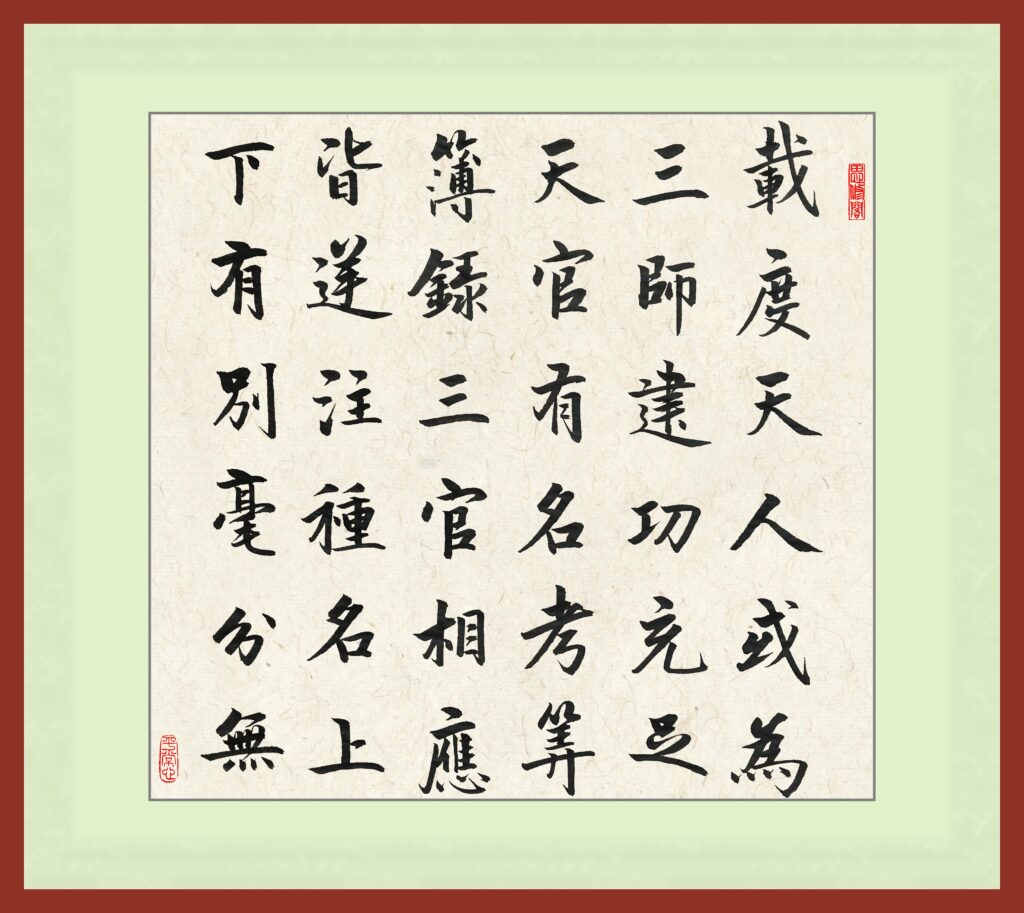 載度天人或為
三師建功充足
天官有名考筭
簿錄三官相應
皆逆注種名上
下有別毫分無
平常心